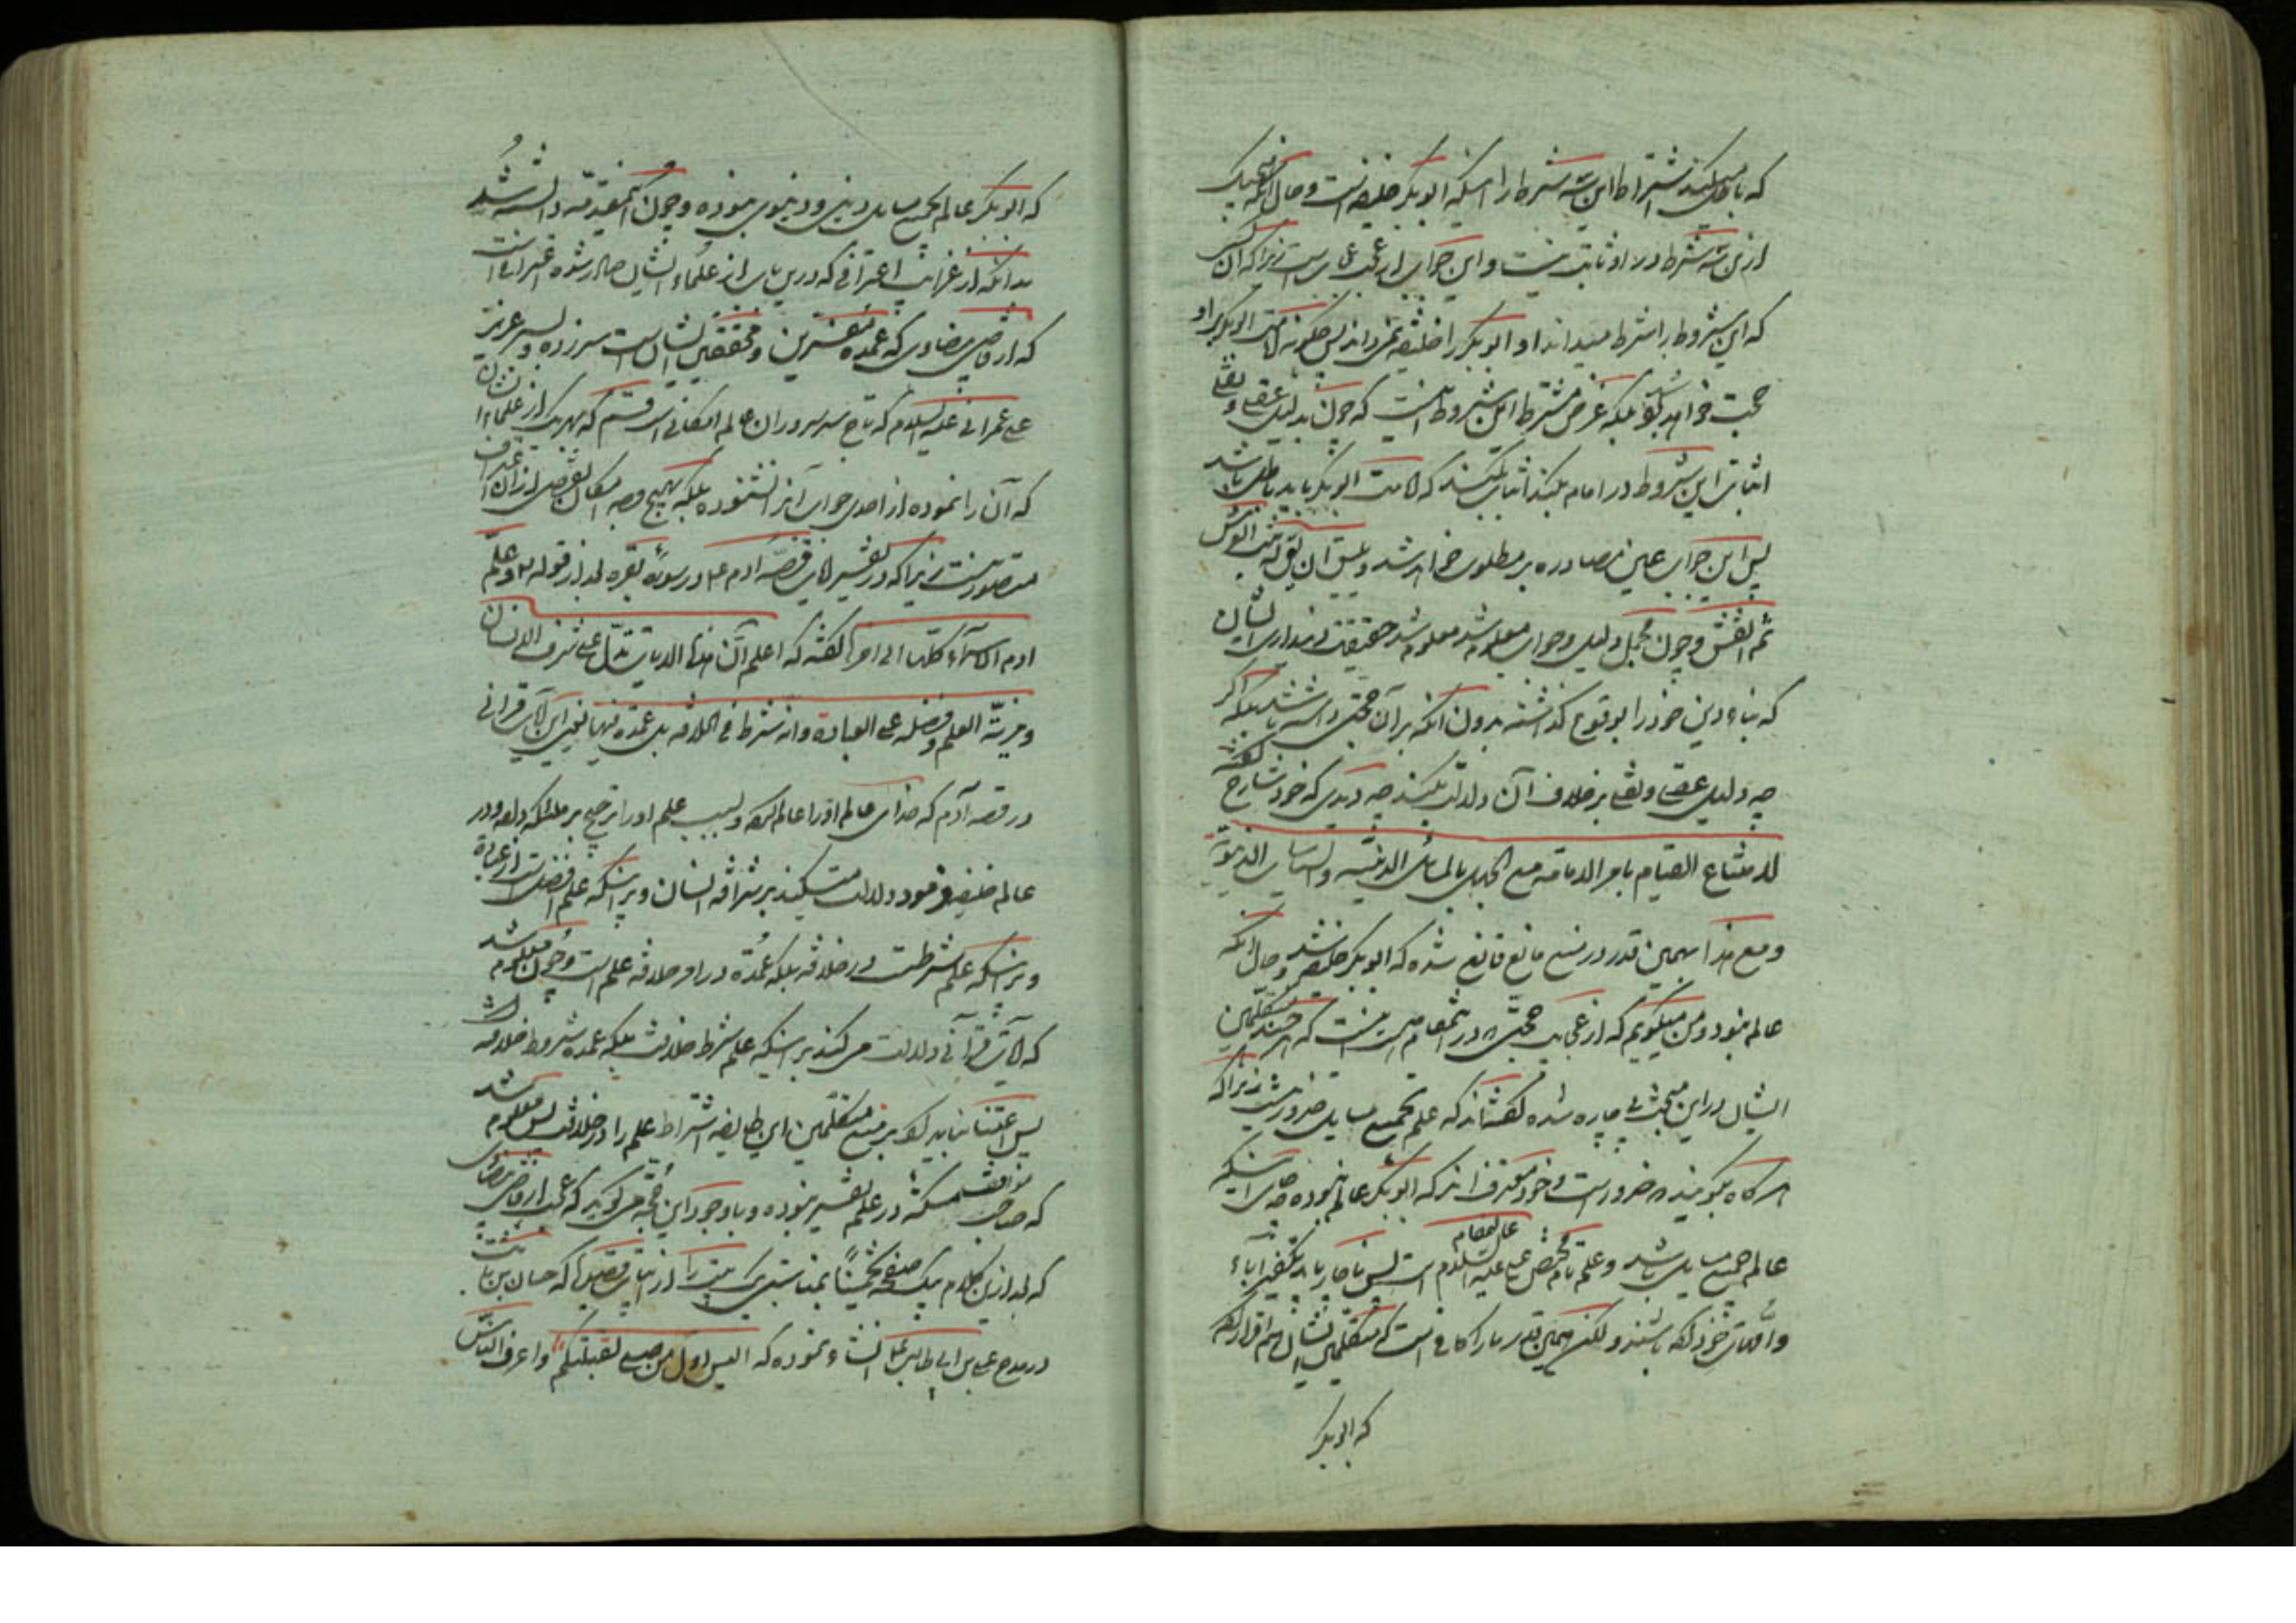 که باطل میکند اشتراط این سه شرط را اینکه ابوبکر خلیفه است و حال آنکه هیچ یک
ازین سه شرط در او ثابت نیست و این جواب از عجایب است زیرا که آن کس
که این شروط را شرط میداند او ابوبکر را خلیفه نمی داند پس چگونه امامت ابوبکر بر او
حجت خواهد بود بلکه غرض مشترط این شروط اینست که چون بدلیل عقلی و نقلی
اثبات این شروط در امام بکند اثبات میکند که امامت ابوبکر باید باطل باشد
پس این جواب عین مصادره بر مطلوب خواهد شد و مثل آن بقوله ثبت العرش
ثم انقش و چون مجمل دلیل و جواب معلوم شد معلوم شد حقیقت دینداری ایشان
که بناء دین خود را بوقوع گذاشته بدون آنکه بر آن حجتی داشته باشند بلکه اگر
چه دلیل عقلی و نقلی بر خلاف آن دلالت بکند چه دیدی که خود شارح گفته
لامتناع القیام بامر الامامة مع الجهل بالمسائل الدینیه و السیاسات الدنیویة
و مع هذا بهمین قدر در منع مانع قانع شده که ابوبکر خلیفه شد و حال آنکه
عالم نبود و من میگویم که از عجایب حجتها در اینمقام این است که هر چند متکلمین
ایشان در این مبحث بی چاره شده گفته اند که علم بجمیع مسایل ضرور نیست زیرا که
هر گاه بگویند ضرور است و خود معترف اند که ابوبکر عالم نبوده چه جای اینکه
عالم بجمیع مسایل باشد و علم تام مختص بعلی عالیمقام علیه السلام است پس ناچار باید تکفیر آباء
و امهات خود کرده باشند و لکن همین قدر ما را کافی است که متکلمین ایشان هم اقرار کرده
که ابوبکر
که ابوبکر عالم بجمیع مسایل دینی و دنیوی نبوده و چون اینمقدمه دانسته شد
بدانکه از غرایب اعترافی که درین باب از علماء ایشان صادر شده اعترافی است
که از قاضی بیضاوی که عمده مفسرین و محققین ایشان است سر زده و بسر عزیز
علی عمرانی علیه السلام که تاج سر سروران عالم امکانی است قسم که هر یک از علماء ایشان
که آن را نموده از احدی جواب آنرا نشنوده بلکه بهیچ وجه امکان تفصی از آن اعتراف
متصور نیست زیرا که در تفسیر آیات قصه آدم ع در سوره بقره بعد از قوله تعالی و علم
آدم الاسماء کلها الی آخرها گفته که اعلم ان هذه الآیات تدل علی شرف الانسان
و مزیة العلم و فضله علی العبادة و انه شرط فی الخلافة بل عمدة فیها یعنی این آیات قرآنی
در قصه آدم که خدای عالم او را عالم کرد و بسبب علم او را ترجیح بر ملائکه داده و در
عالم خلیفه فرمود دلالت میکند بر شرافة انسان و بر اینکه علم افضل است از عبادة
و بر اینکه علم شرطست در خلافة بلکه عمده در امر خلافة علم است و چون معلوم شد
که آیات قرآنی دلالت می کند بر اینکه علم شرط خلافت بلکه عمده شروط خلافة است
پس اعتنا نباید کرد بر منع متکلمین این طایفه اشتراط علم را در خلافت پس معلوم شد
که صاحب مواقف مسکة در علم تفسیر نبوده و با وجود این قبحه می گوید که عجب از قاضی بیضاوی
که بعد ازین کلام بیک صفحه تخمینا بمناسبتی یک بیت را از ابیات قصیده که حسان بن ثابت
در مدح علی بن ابی طالب ع انشاء نموده که الیس اول من صلی لقبلتکم و اعرف الناس